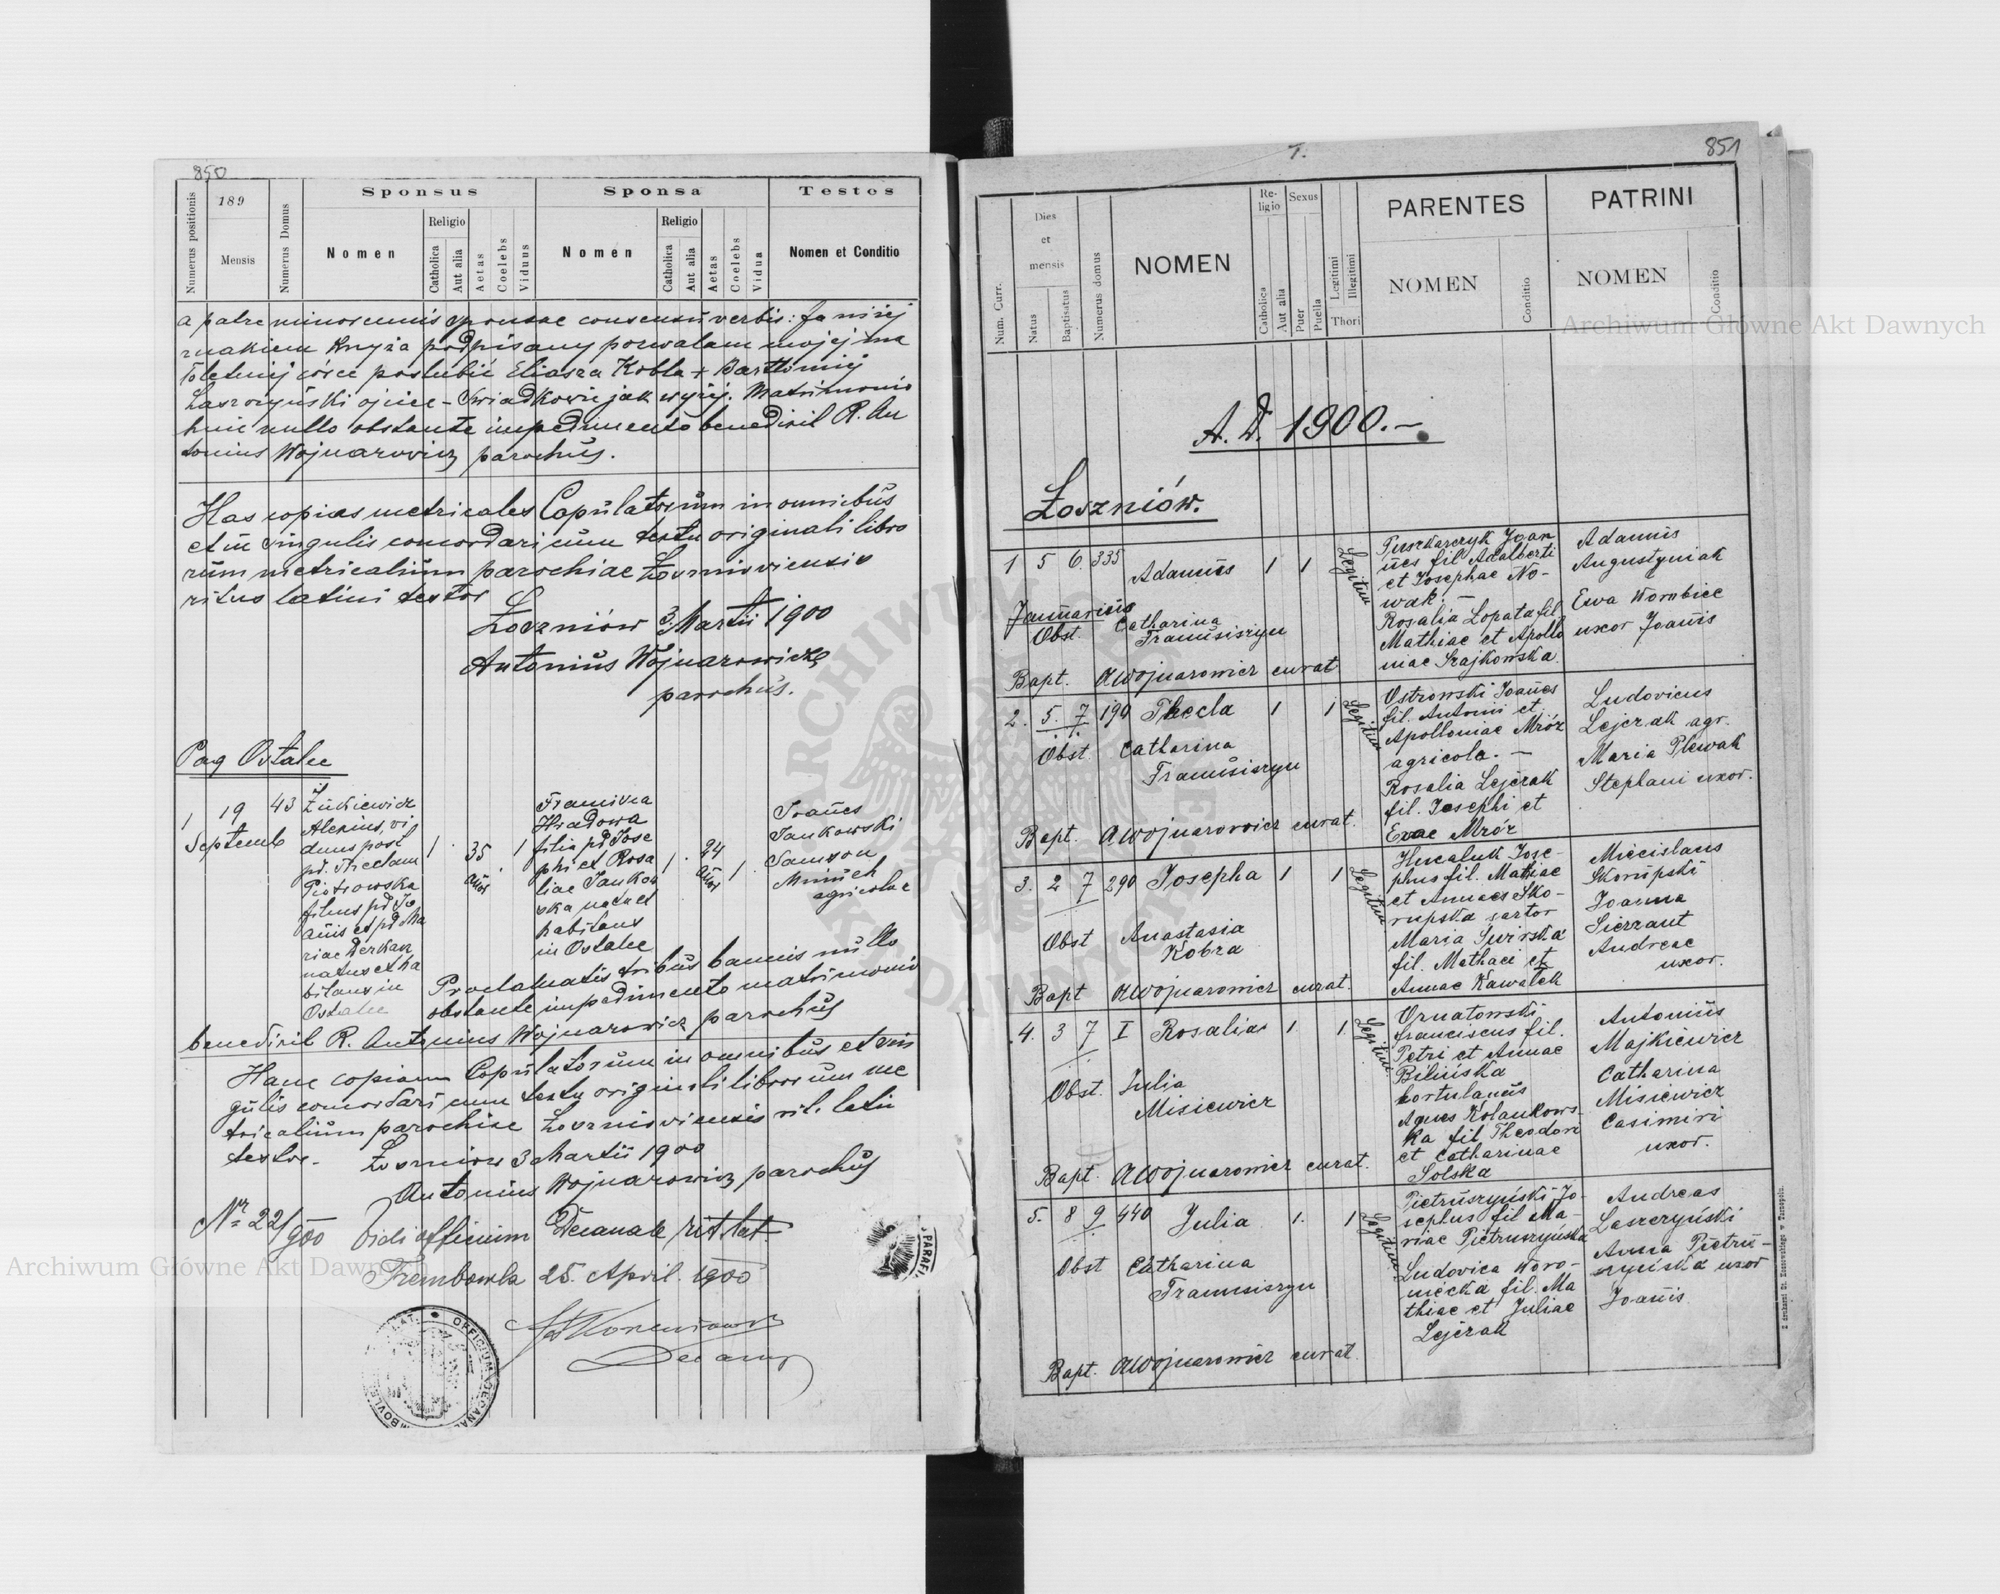 850
Numerus positionis
189
Mensis
Numerus Domus
Sponsus
Nomen
Religio
Catholica
Aut alia
Aetas
Coelebs
Viduus
Sponsa
Nomen
Religio
Catholica
Aut alia
Aetas
Coelebs
Vidua
Testes
Nomen et Conditio
a patre minorennis sponsae consensu verbis: Ja niżej
znakiem krzyża podpisany pozwalam mojej ma
łoletniej córce poślubić Eliasza Kobla + Bartłomiej
Laszczyński ojciec - Świadkowie jak wyżej. Matrimonio
huic nullo obstante impedimento benedixit R. An
tonius Wojnarowicz parochus.
Has copias metricales Copulatorum in omnibus
et in singulis concordari cum textu originali libro
rum metricalium parochiae Łoszniowiensis
ritus latini testor
Łoszniów 3 Martii 1900
Antonius Wojnarowicz
parochus.
Pag Ostalec
1 19 43
Septemb
Żukiewicz
Alexius, vi
duus post
pd. Theclam
Piotrowska
filius pd Jo
anis et pd Ma
riae Derkacz
natus et ha
bitans in
Ostalec
1 35 1
annor
Franciszka
Hradowa
filia pd Jose
phi et Rosa
liae Jankow
ska nata et
habitans
in Ostalec
1 24 1
annor
Joanes
Jankowski
Samson
Munich
agricolae
Proclamatis tribus bannis nullo
obstante impedimento matrimonio
benedixit R. Antonius Wojnarowicz parochus
Hanc copiam Copulatorum in omnibus et sin
gulis concordari cum textu originali librorum me
tricalium parochiae Łoszniowiensis rit. latin
testor. Łoszniów 3 Martii 1900
Antonius Wojnarowicz parochus
Nr 22/900 Vidi officium Decanale rit lat
Trembowla 25. April. 1900
Decanus
OFFICIUM DECANAL
PARAFI
851
Num. Curr.
Dies
et
mensis
Natus
Baptisatus
Numerus domus
NOMEN
Religio
Catholica
Aut alia
Sexus
Puer
Puella
Legitimi
Illegitimi
Thori
PARENTES
NOMEN
Conditio
PATRINI
NOMEN
Conditio
A.D. 1900.-
Łoszniów.
1 5 6. 335 Adamus 1 1 Legitim
Januarius
Obst. Catharina
Franusiszyn
Bapt. AWojnarowicz curat
Puszkarczyk Joan
nes fil Adalberti
et Josephae No-
wak. -
Rosalia Łopata fil.
Mathiae et Apollo
niae Szajkowska
Adamus
Augustyniak
Ewa Wornbiec
uxor Joanis
2. 5. 7. 190 Thecla 1 1 Legitim
Obst. Catharina
Franusiszyn
Bapt. AWojnarowicz curat.
Ostrowski Joanes
fil. Antoni et
Apolloniae Mróz
agricola. -
Rosalia Lejczak
fil. Josephi et
Evae Mróz
Ludovicus
Lejczak agr.
Maria Plewak
Stephani uxor.
3. 2 7 290 Josepha 1 1 Legitim
Obst Anastasia
Kobza
Bapt AWojnarowicz curat.
Hucaluk Jose-
phus fil. Mathiae
et Annae Sko-
rupska sartor
Maria Swirska
fil. Mathaei et
Annae Kawałek
Miecislaus
Skorupski
Joanna
Sierzant
Andreae
uxor.
4. 3 7 I Rosalia 1 1 Legitim
Obst. Julia
Misiewicz
Bapt. AWojnarowicz curat.
Ornatowski
Franciscus fil.
Petri et Annae
Bilińska
hortulanus
Agnes Kolankows-
ka fil. Theodori
et Catharinae
Solska
Antonius
Majkiewicz
Catharina
Misiewicz
Casimiri
uxor.
5. 8 9 440 Julia 1. 1 Legitim
Obst Catharina
Franusiszyn
Bapt. AWojnarowicz curat
Pietruszyński Jo-
sephus fil Ma-
riae Pietruszyńska
Ludovica Woro-
niecka fil. Ma
thiae et Juliae
Lejczak
Andreas
Laszczyński
Anna Pietru-
szyńska uxor
Joanis
Z drukarni St. Kossowskiego w Tarnopolu.
Archiwum Główne Akt Dawnych
Archiwum Główne Akt Dawnych
ARCHIWUM
AKT DAWNYCH